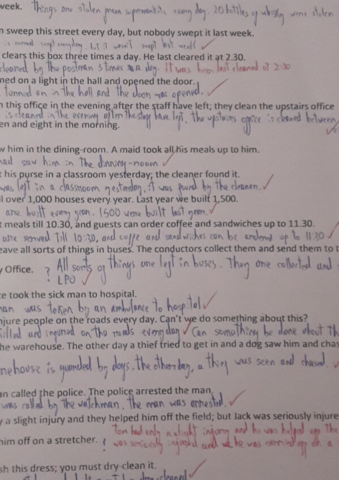 week. Things are stolen from supermarkets every day. 20 bottles of whisky were stolen
n sweep this street every day, but nobody swept it last week.
is swept everyday but it wasn't swept last week
clears this box three times a day. He last cleared it at 2.30.
cleared by the postman 3 times a day. It was last cleared at 2:30
ned on a light in the hall and opened the door.
turned on in the hall and the door was opened.
n this office in the evening after the staff have left; they clean the upstairs office
is cleaned in the evening after the staff have left, the upstairs office is cleaned between
en and eight in the morning.
w him in the dining-room. A maid took all his meals up to him.
saw him in the dinning-room
t his purse in a classroom yesterday; the cleaner found it.
was left in a classroom yesterday, it was found by the cleaner
l over 1,000 houses every year. Last year we built 1,500.
are built every year. 1500 were built last year.
t meals till 10.30, and guests can order coffee and sandwiches up to 11.30.
are served till 10:30, and coffe and sandwiches can be ordered up to 11:30
eave all sorts of things in buses. The conductors collect them and send them to t
y Office. ? All sorts of things are left in buses. They are collected and
LPO
ce took the sick man to hospital.
man was taken by an ambulance to hospital
njure people on the roads every day. Can't we do something about this?
killed and injured on the roads everyday Can something be done about th
he warehouse. The other day a thief tried to get in and a dog saw him and chas
ehouse is guarded by dogs. the other day, a thief was seen and chased
an called the police. The police arrested the man.
was called by the watchman, the man was arrested.
y a slight injury and they helped him off the field; but Jack was seriously injure
Tom had only a slight injury and he was helped off the
him off on a stretcher. ? was seriously injured and he was carried off on a
sh this dress; you must dry-clean it.